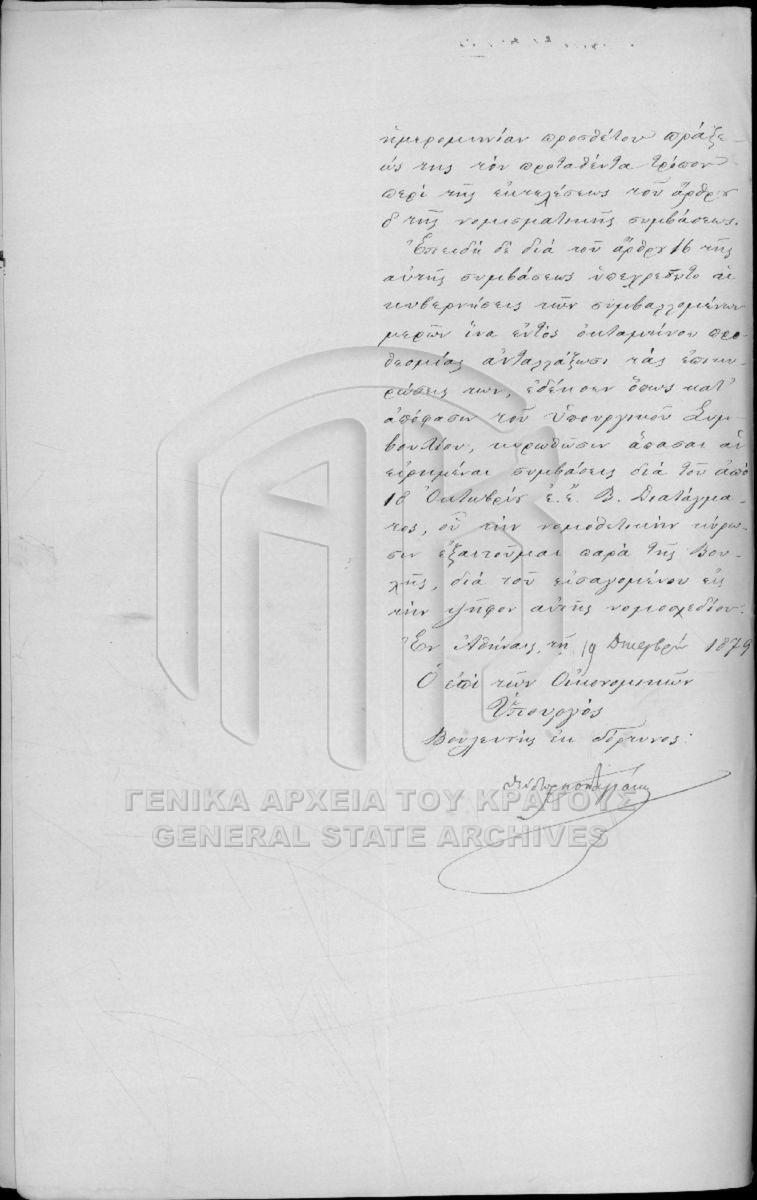 ἡμερομηνίαν προσθέτου πράξε-
ώς της τὸν προταθέντα τρόπον
περὶ τῆς ἐκτελέσεως τοῦ ἄρθρου
8 τῆς νομισματικῆς συμβάσεως.
Ἐπειδὴ δὲ διὰ τοῦ ἄρθρου 16 τῆς
αὐτῆς συμβάσεως ὑπεχρεοῦντο αἱ
κυβερνήσεις τῶν συμβαλλομένων
μερῶν ἵνα ἐντὸς ὀκταμήνου προ-
θεσμίας ἀνταλλάξωσι τὰς ἐπικυ-
ρώσεις των, ἐδέησεν ὅπως κατ'
ἀπόφασιν τοῦ Ὑπουργικοῦ Συμ-
βουλίου, κυρωθῶσιν ἅπασαι αἱ
εἰρημέναι συμβάσεις διὰ τοῦ ἀπὸ
18 Ὀκτωβρίου ἐ. ἔ. Β. Διατάγμα-
τος, οὗ τὴν νομοθετικὴν κύρω-
σιν ἐξαιτοῦμαι παρὰ τῆς Βου-
λῆς, διὰ τοῦ εἰσαγομένου εἰς
τὴν ψῆφον αὐτῆς νομοσχεδίου.
Ἐν Ἀθήναις, τῇ 19 Δεκεμβρίου 1879
Ὁ ἐπὶ τῶν Οἰκονομικῶν
Ὑπουργὸς
Βουλευτὴς ἐκ Γόρτυνος:
ΓΕΝΙΚΑ ΑΡΧΕΙΑ ΤΟΥ ΚΡΑΤΟΥΣ
GENERAL STATE ARCHIVES